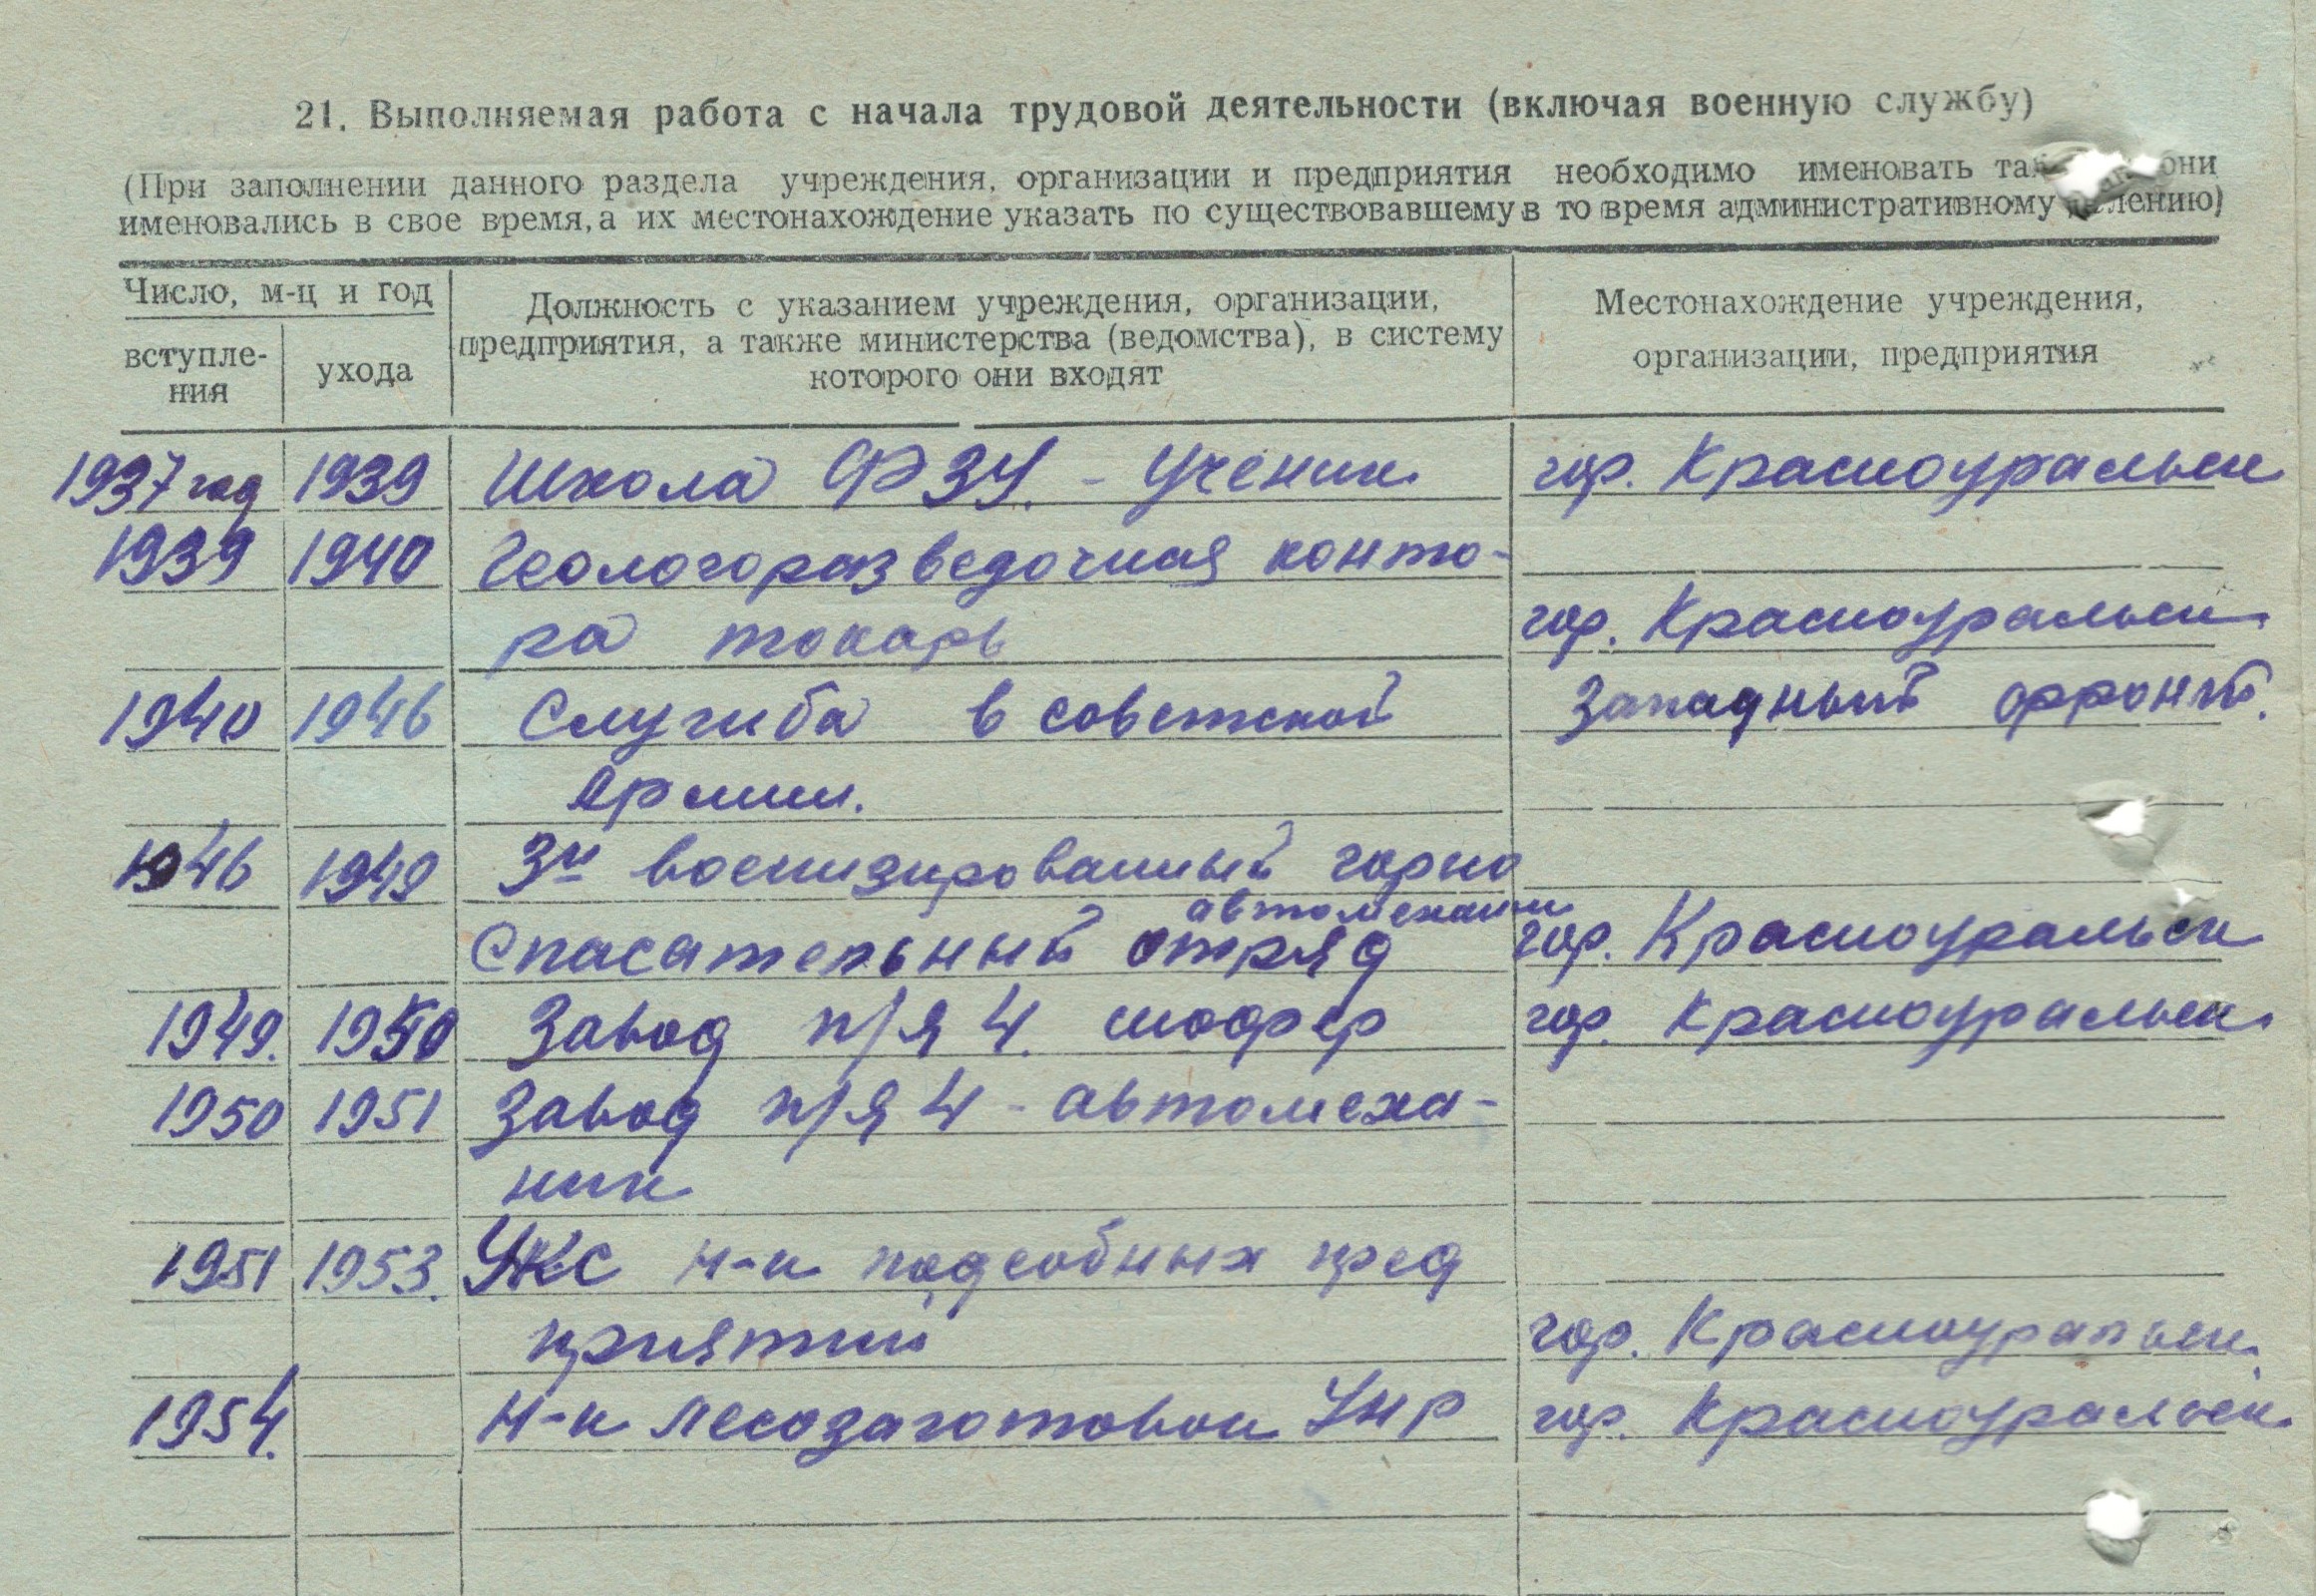 21. Выполняемая работа с начала трудовой деятельности (включая военную службу)
(При заполнении данного раздела учреждения, организации и предприятия необходимо именовать они
именовались в свое время, а их местонахождение указать по существовавшему в то время административному
Число, м-ц и год
вступле-
ния
ухода
Должность с указанием учреждения, организации,
предприятия, а также министерства (ведомства), в систему
которого они входят
Местонахождение учреждения,
организации, предприятия
1937 год 1939 Школа ФЗУ. - Ученик гор. Красноуральск
1939 1940 Геологоразведочная конто-
ра токарь гор. Красноуральск
1940 1946 Служба в советской Западный фронт.
Армии.
1946 1949 3й военизированный горно
автомеханик
Спасательный отряд гор. Красноуральск
1949. 1950 Завод п/я 4. шофер гор. Красноуральск
1950 1951 Завод п/я 4 - автомеха-
ник
1951 1953. УКС н-к подсобных пред
приятий гор. Красноуральск
1954. Н-к лесозаготовок УНР гор. Красноуральск